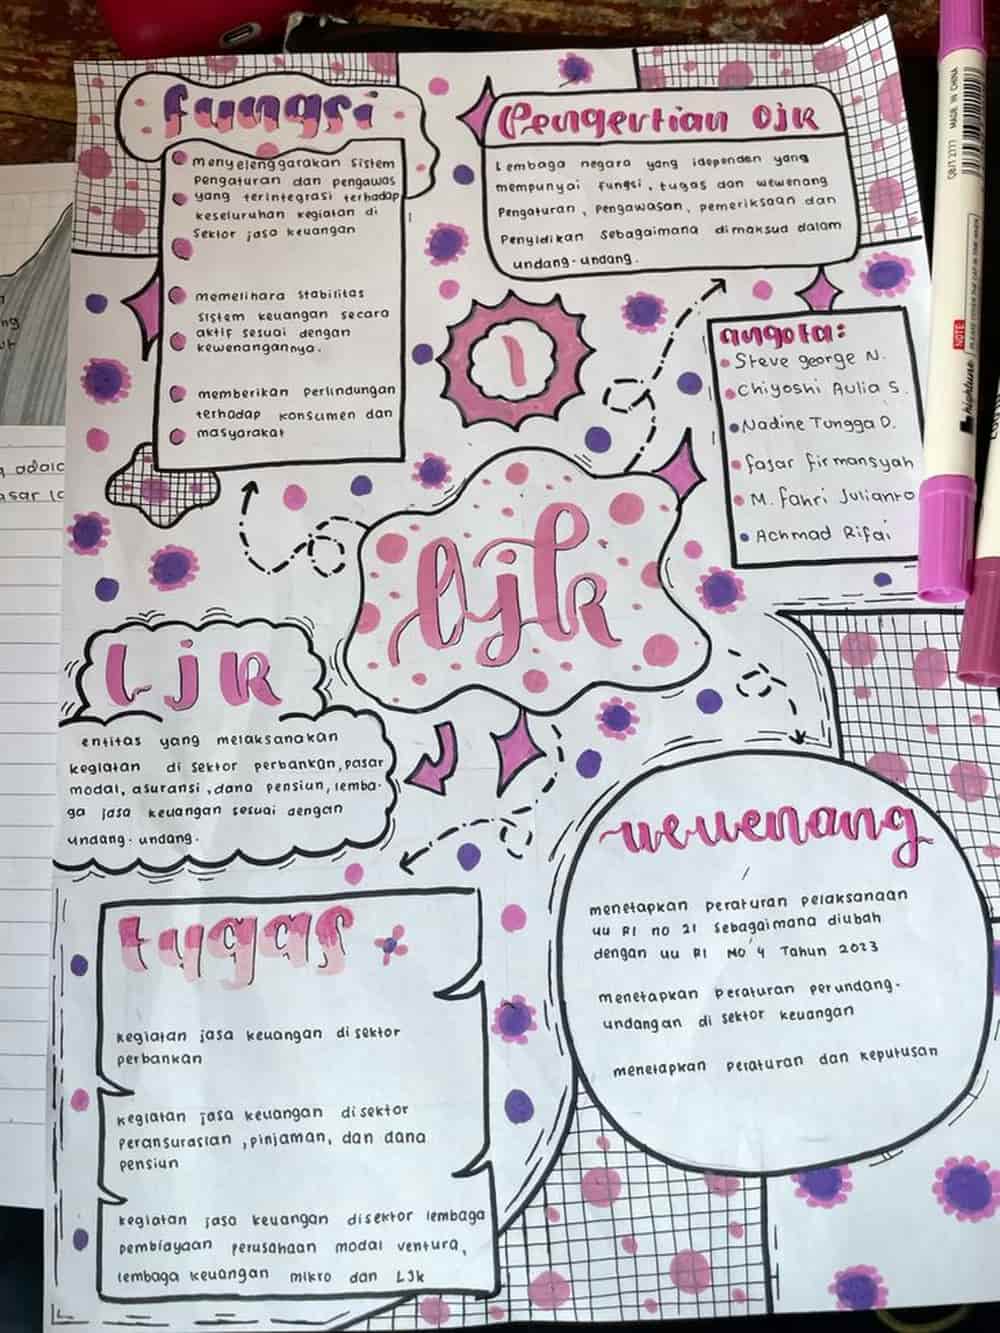 fungsi
menyelenggarakan sistem
pengaturan dan pengawas
yang terintegrasi terhadap
keseluruhan kegiatan di
sektor jasa keuangan
memelihara stabilitas
sistem keuangan secara
aktif sesuai dengan
kewenangannya.
memberikan perlindungan
terhadap konsumen dan
masyarakat
Pengertian OJK
Lembaga negara yang idependen yang
mempunyai fungsi, tugas dan wewenang
Pengaturan, pengawasan, pemeriksaan dan
Penyidikan sebagaimana dimaksud dalam
undang-undang.
1
angota:
Steve george N.
Chiyoshi Aulia S.
Nadine Tungga D.
fajar firmansyah
M. fahri Julianto
Achmad Rifai
ljk
LJK
entitas yang melaksanakan
kegiatan di sektor perbankan, pasar
modal, asuransi, dana pensiun, lemba-
ga jasa keuangan sesuai dengan
undang-undang.
wewenang
menetapkan peraturan pelaksanaan
uu RI no 21 sebagaimana diubah
dengan uu RI NO 4 Tahun 2023
menetapkan peraturan perundang-
undangan di sektor keuangan
menetapkan peraturan dan keputusan
tugas
kegiatan jasa keuangan di sektor
perbankan
kegiatan jasa keuangan disektor
peransurasian, pinjaman, dan dana
pensiun
kegiatan jasa keuangan disektor lembaga
pembiayaan perusahaan modal ventura,
lembaga keuangan mikro dan LJk
MADE IN CHINA
NOTE